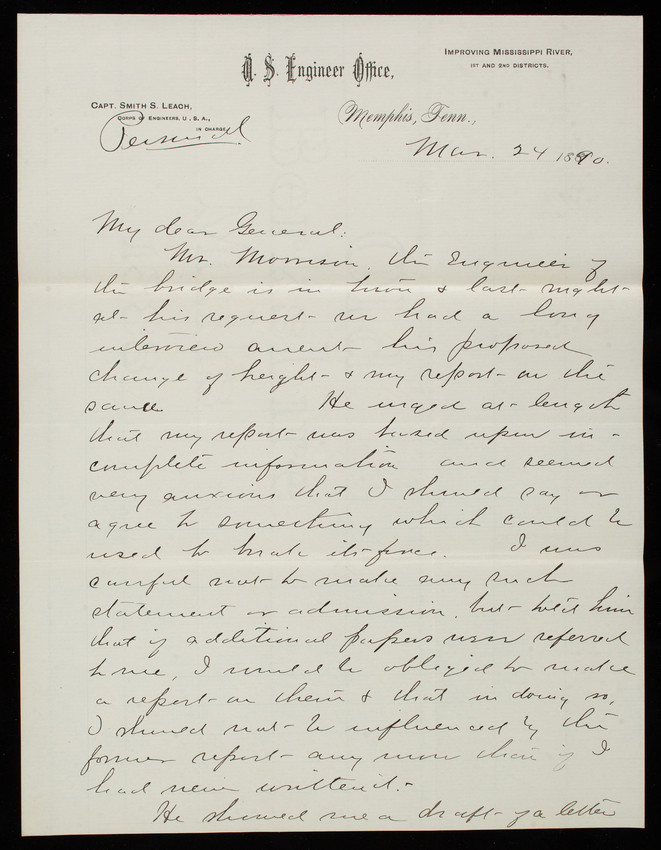 U. S. Engineer Office,
IMPROVING MISSISSIPPI RIVER,
1ST AND 2ND DISTRICTS.
CAPT. SMITH S. LEACH,
CORPS OF ENGINEERS, U. S. A.,
IN CHARGE.
Personal
Memphis, Tenn.,
Mar. 24 1890.
My dear General:
Mr. Morrison, the Engineer of
the bridge is in town & last night
at his request we had a long
interview anent his proposed
change of height & my report on the
same He urged at length
that my report was based upon in-
complete information and seemed
very anxious that I should say or
agree to something which could be
used to break its force. I was
careful not to make any such
statement or admission, but told him
that if additional papers were referred
to me, I would be obliged to make
a report on them & that in doing so,
I should not be influenced by the
former report any more than if I
had never written it.-
He showed me a draft of a letter